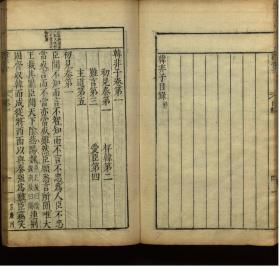 韓非子目錄終
韓非子卷第一
初見秦第一 存韓第二
難言第三 愛臣第四
主道第五
初見秦第一
臣聞不知而言不智知而不言不忠為人臣不忠
當死言而不當亦當死雖然臣願悉言所聞唯大
王裁其罪臣聞天下陰燕陽魏連荊
固齊收韓而成從將西面以與秦強為難臣竊笑